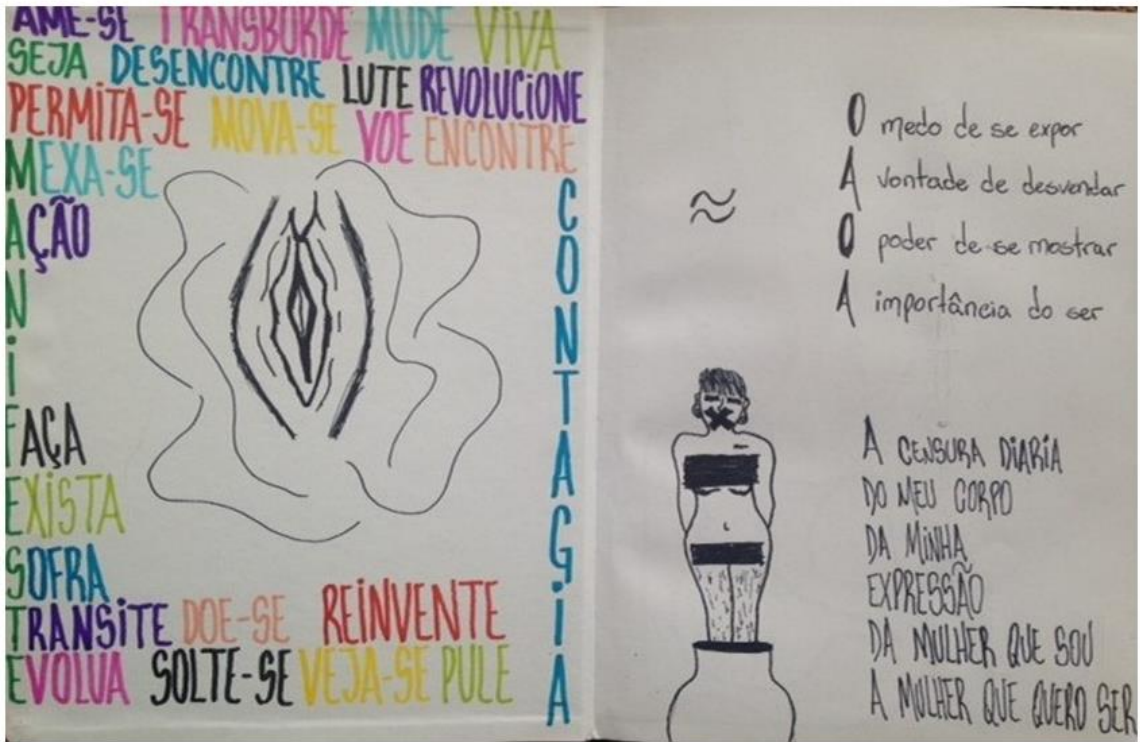 AME-SE TRANSBORDE MUDE VIVA
SEJA DESENCONTRE LUTE REVOLUCiONE
PERMiTA-SE MOVA-SE VOE ENCONTRE
MEXA-SE
AÇÃO
N
i
FAÇA
EXiSTA
SOFRA
TRANSiTE DOE-SE REiNVENTE
EVOLUA SOLTE-SE VEJA-SE PULE
CONTAGiA
≈
O medo de se expor
A vontade de desvendar
O poder de se mostrar
A importância do ser
A CENSURA DiARiA
DO MEU CORPO
DA MiNHA
EXPRESSÃO
DA MULHER QUE SOU
A MULHER QUE QUERO SER